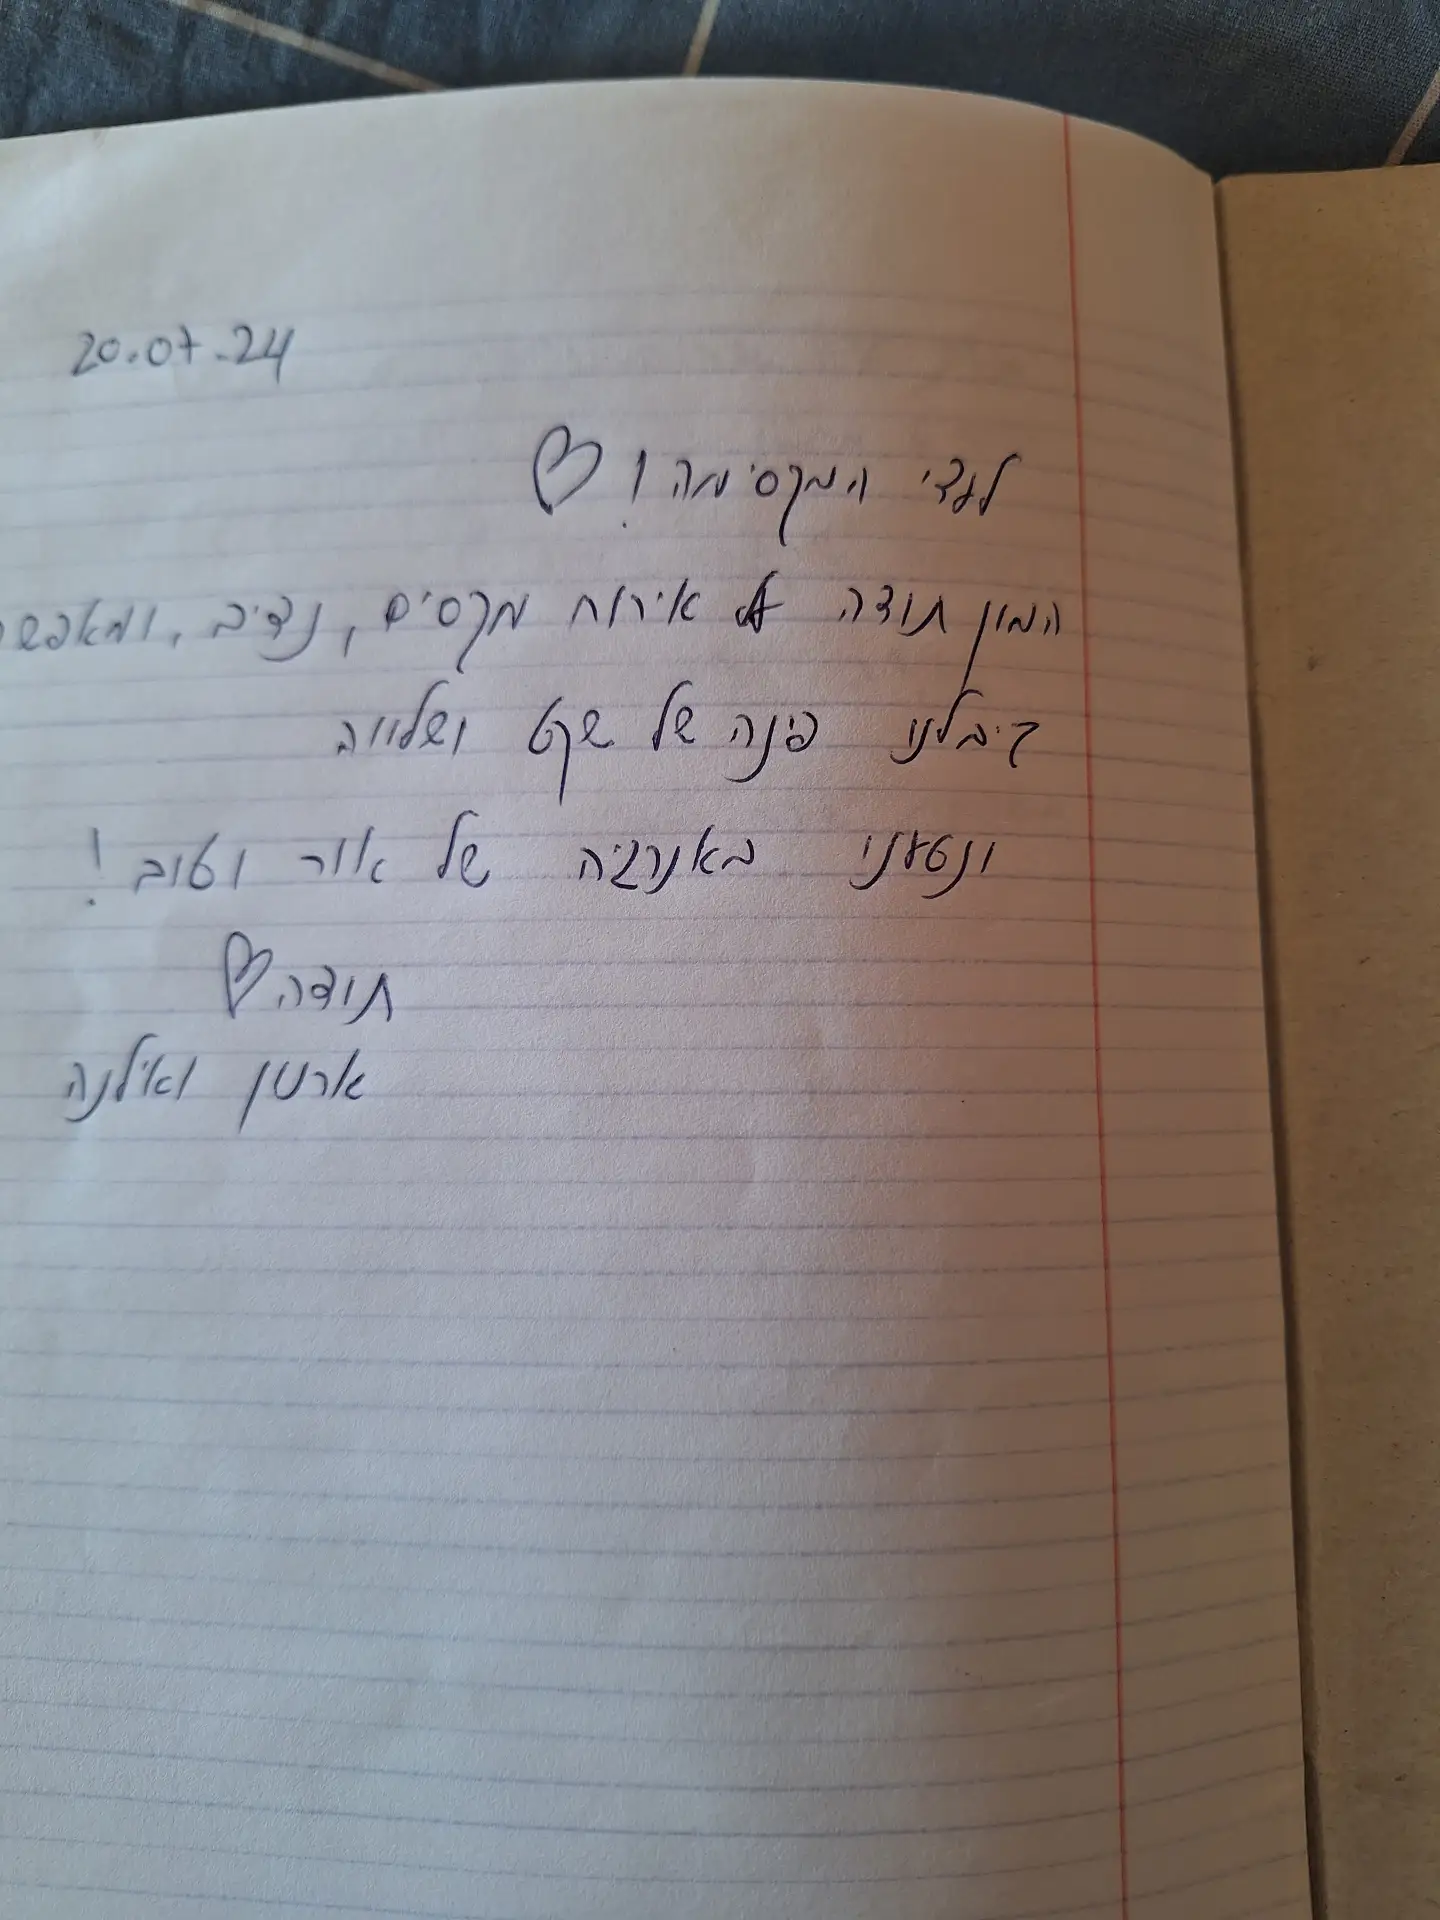 20.07.24
לעדי המקסימה! ♡
המון תודה על אירוח מקסים, נדיב, ומאפשר
קיבלנו פינה של שקט ושלווה
ונטענו באנרגיה של אור וטוב!
תודה ♡
ארטן ואילנה